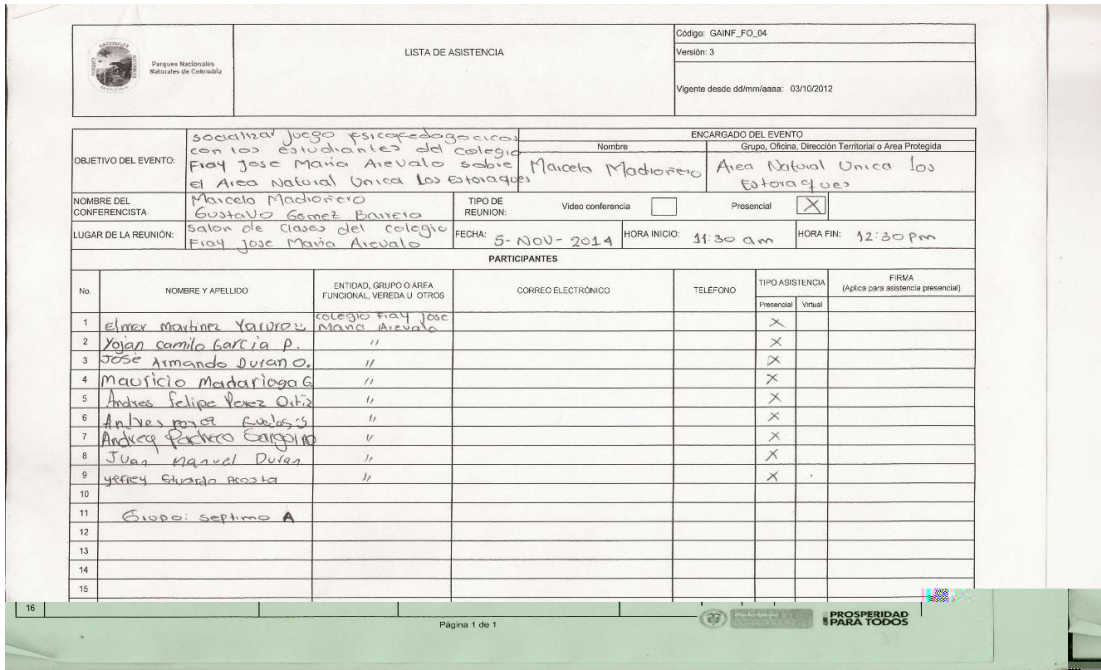 PARQUES NACIONALES NATURALES
Parques Nacionales
Naturales de Colombia
LISTA DE ASISTENCIA
Código: GAINF_FO_04
Versión: 3
Vigente desde dd/mm/aaaa: 03/10/2012
OBJETIVO DEL EVENTO:
socializar juego psicopedagocicos
con los estudiantes del colegio
Fray Jose Maria Arevalo sobre
el Area Natural Unica Los Estoraques
ENCARGADO DEL EVENTO
Nombre
Grupo, Oficina, Dirección Territorial o Area Protegida
Marcela Madroñero
Area Natural Unica Los
Estoraques
NOMBRE DEL
CONFERENCISTA
Marcela Madroñero
Gustavo Gomez Barrera
TIPO DE
REUNION:
Video conferencia
Presencial X
LUGAR DE LA REUNIÓN:
Salon de clases del colegio
Fray Jose Maria Arevalo
FECHA: 5-NOV-2014
HORA INICIO: 11:30 am
HORA FIN: 12:30 pm
PARTICIPANTES
No.
NOMBRE Y APELLIDO
ENTIDAD, GRUPO O ÁREA
FUNCIONAL, VEREDA U OTROS
CORREO ELECTRÓNICO
TELÉFONO
TIPO ASISTENCIA
Presencial Virtual
FIRMA
(Aplica para asistencia presencial)
1 Elmer Martinez colegio Fray Jose Maria Arevalo X
2 Yojan camilo García P. " X
3 José Armando Duran O. " X
4 Mauricio Madariaga G " X
5 Andres Felipe Perez Ortiz " X
6 Andres " X
7 Andrea Pacheco " X
8 Juan Manuel Duran " X
9 yefrey Eduardo Acosta " X
10
11 Grupo: septimo A
12
13
14
15
16
Página 1 de 1
PROSPERIDAD
PARA TODOS